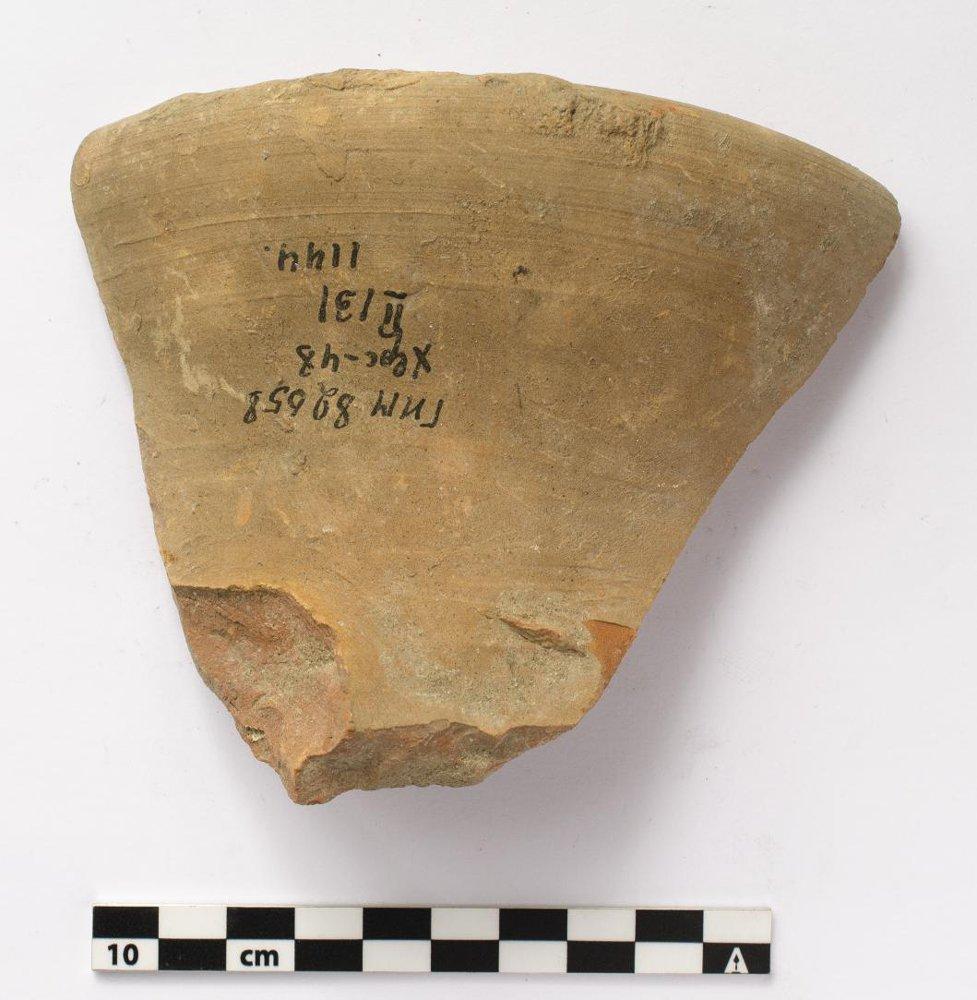 ГИМ 82658
Херс-48
II 131
1144.
10 cm